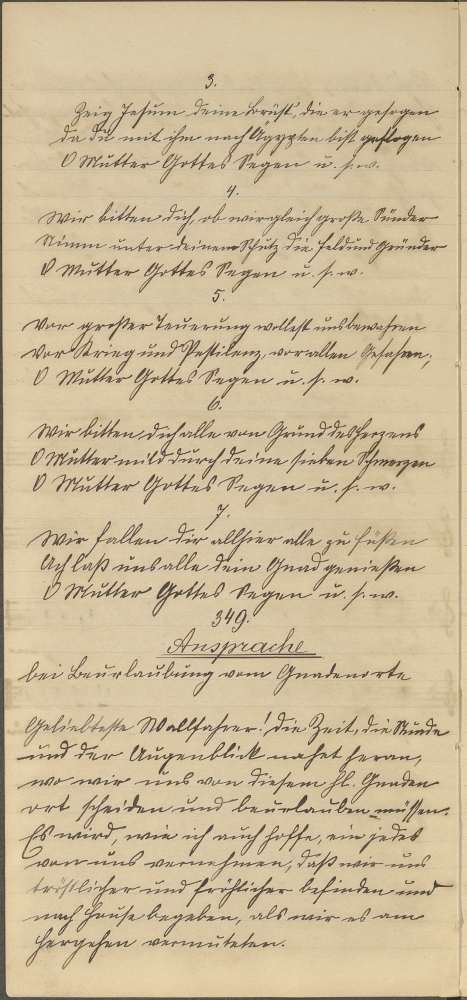 3.
Zeig Jesum deine Brüst, die er gesogen
da du mit ihm nach Ägypten bist geflogen
O Mutter Gottes Segen u. s. w.
4.
Wir bitten dich, ob wir gleich große Sünder
Nimm unter deinem Schutz die Feld und Gründer
O Mutter Gottes Segen u. s. w.
5.
Vor großer Teuerung wollest uns bewahren
Vor Krieg und Pestilenz, vor allen Gefahren;
O Mutter Gottes Segen u. s. w.
6.
Wir bitten dich alle von Grund des Herzens
O Mutter mild durch deine sieben Schmerzen
O Mutter Gottes Segen u. s. w.
7.
Wir fallen dir allhier alle zu füßen
Ach laß uns alle dein Gnad genießen
O Mutter Gottes Segen u. s. w.
349.
Ansprache
bei Beurlaubung vom Gnadenorte
Geliebteste Wallfahrer! die Zeit, die Stunde
und der Augenblick nahet heran,
wo wir uns von diesem hl. Gnaden
ort scheiden und beurlauben müssen.
Es wird, wie ich auch hoffe, ein jedes
von uns vernehmen, daß wir uns
tröstlicher und fröhlicher befinden und
nach Hause begeben, als wir es am
Hergehen vermuteten.